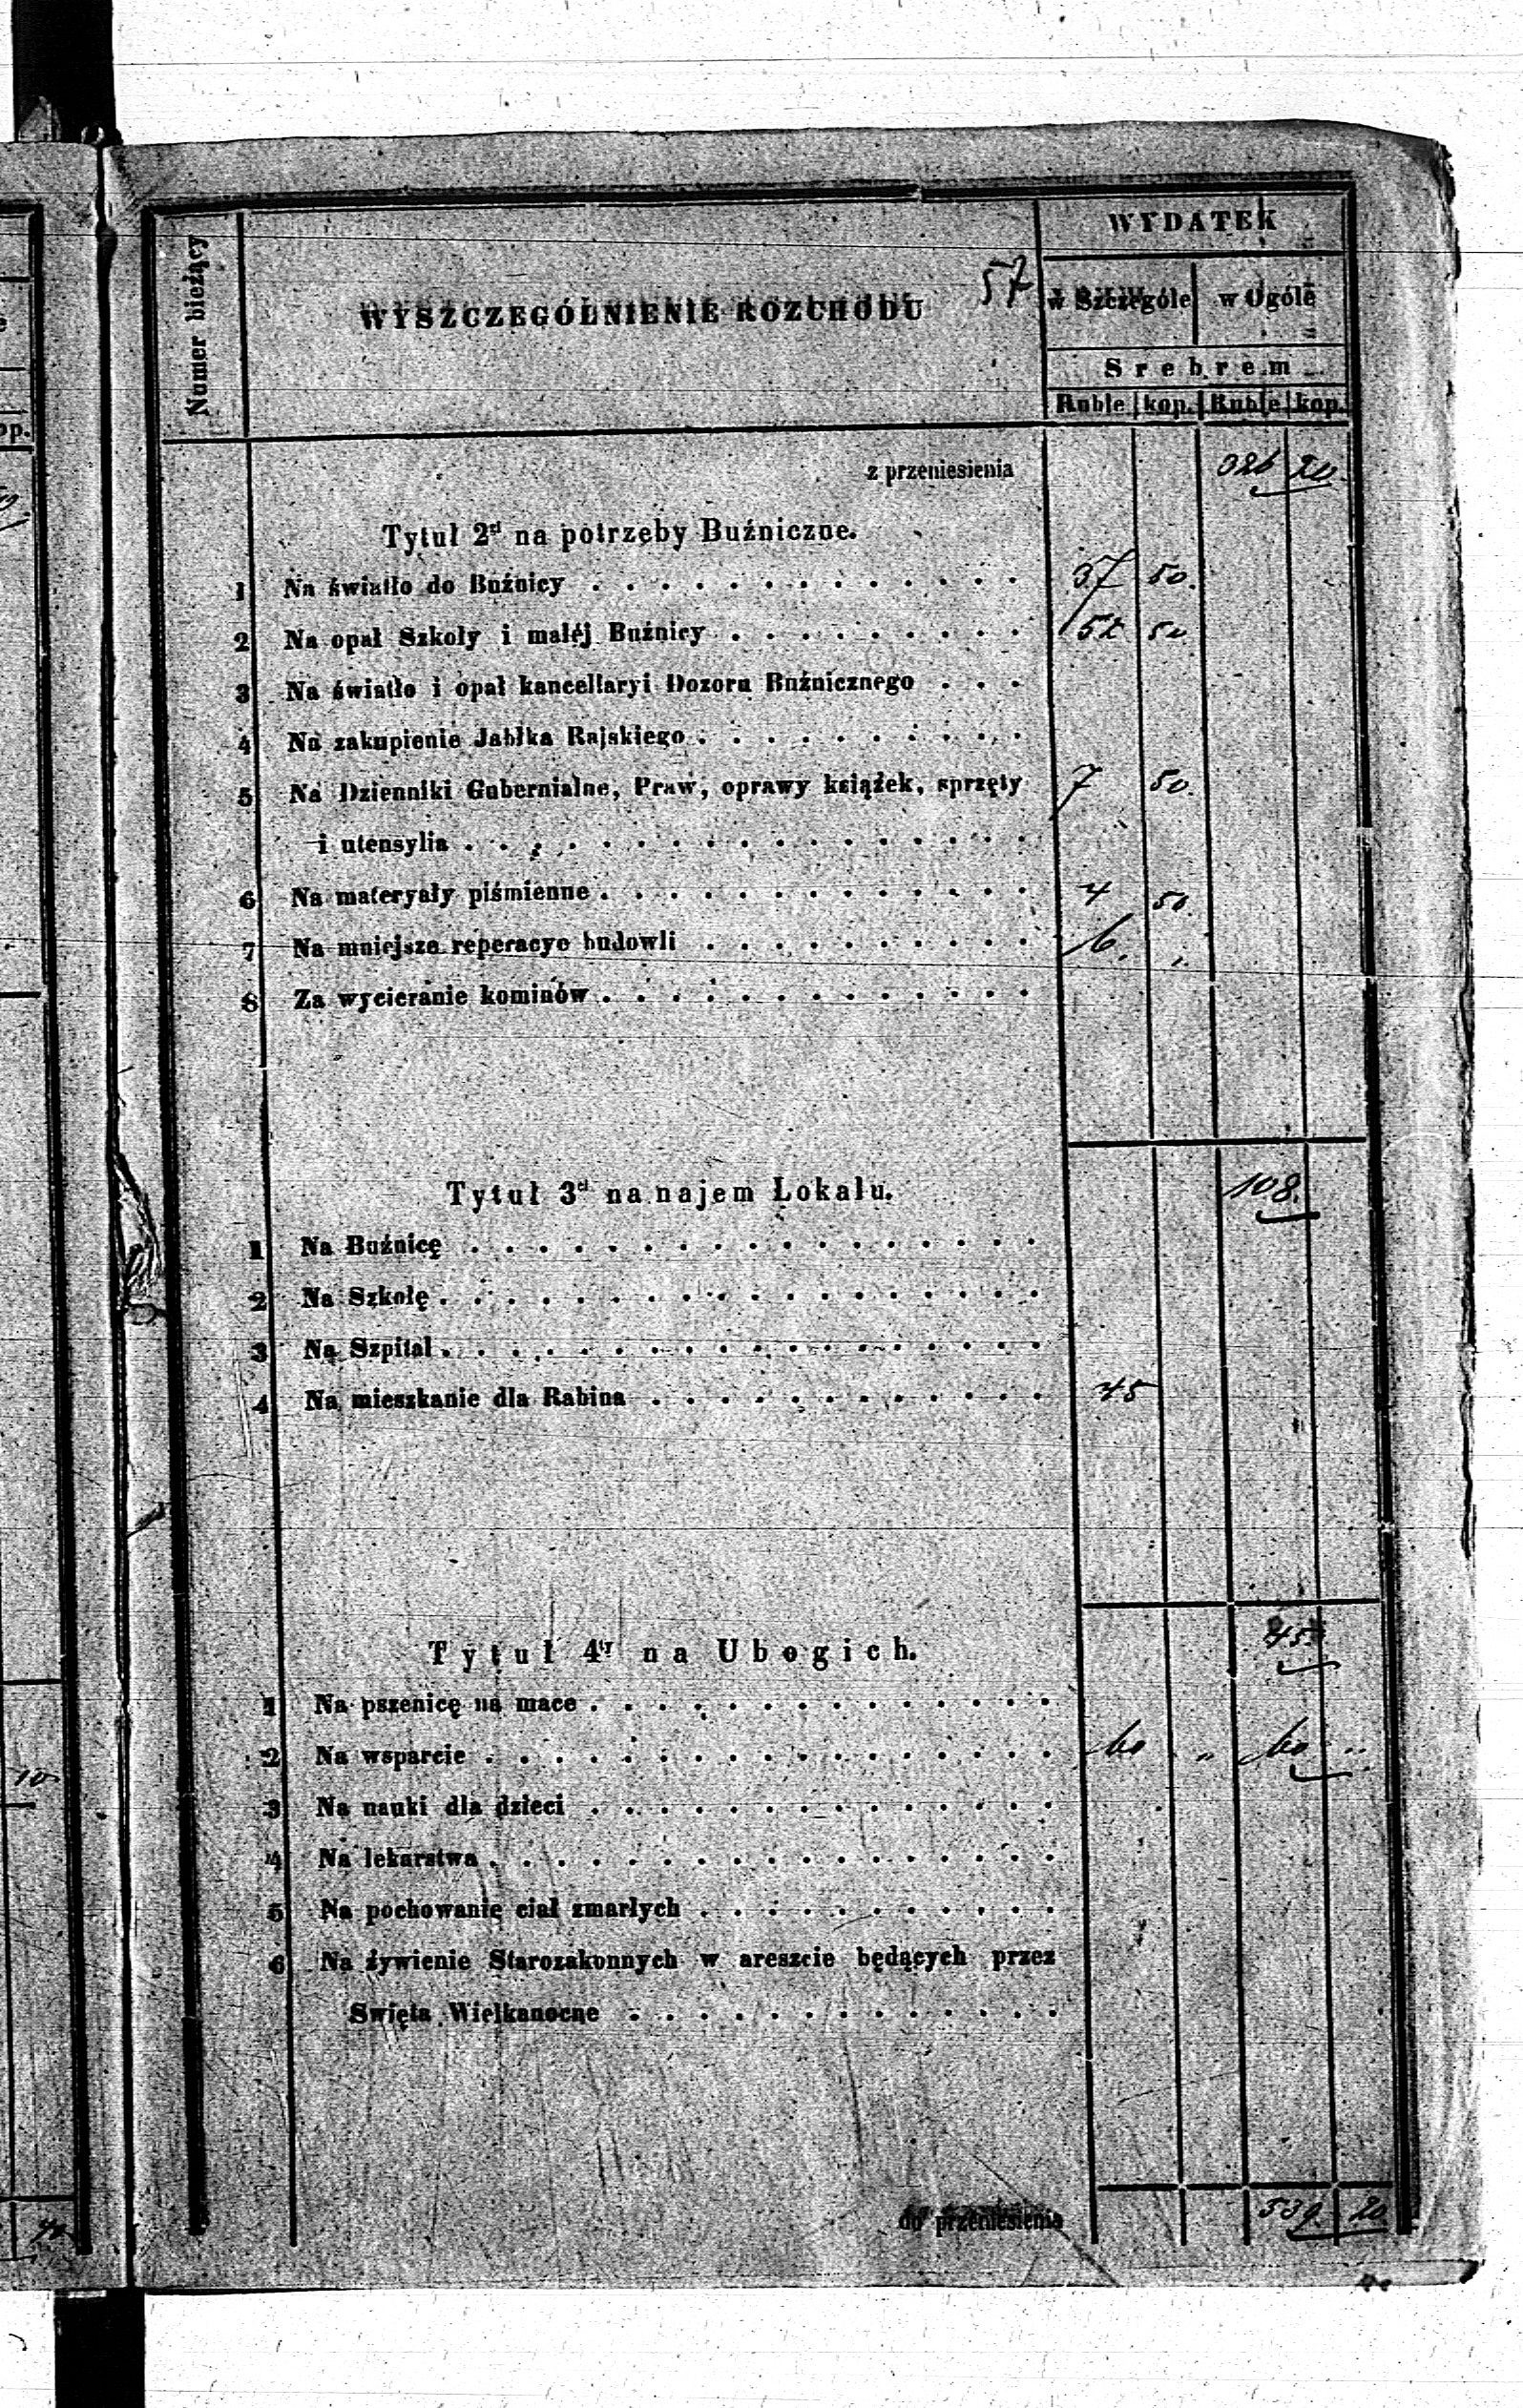 WYDATEK
Numer bieżący
WYSZCZEGÓLNIENIE ROZCHODU
57
w Szczególe w Ogóle
Srebrem
Ruble kop. Ruble kop.
z przeniesienia 326 20.
Tytuł 2gi na potrzeby Buźniczne.
1 Na światło do Buźnicy . . . . . . . . . . . . . 37 50.
2 Na opał Szkoły i małéj Buźnicy . . . . . . . . . 52 50
3 Na światło i opał kancellaryi Dozoru Buźnicznego . . .
4 Na zakupienie Jabłka Rajskiego . . . . . . . . . .
5 Na Dzienniki Gubernialne, Praw, oprawy książek, sprzęty 7 50.
i utensylia . . . . . . . . . . . . . . . . .
6 Na materyały piśmienne . . . . . . . . . . . . . 4 50.
7 Na mniejsze reperacye budowli . . . . . . . . . . 6. „
8 Za wycieranie kominów . . . . . . . . . . . . .
Tytuł 3ci na najem Lokalu. 108.
1 Na Buźnicę . . . . . . . . . . . . . . . . .
2 Na Szkołę . . . . . . . . . . . . . . . . . .
3 Na Szpital . . . . . . . . . . . . . . . . . .
4 Na mieszkanie dla Rabina . . . . . . . . . . . . 45
Tytuł 4ty na Ubogich. 45.
1 Na pszenicę na mace . . . . . . . . . . . . . .
2 Na wsparcie . . . . . . . . . . . . . . . . . 60 „ 60 „
3 Na nauki dla dzieci . . . . . . . . . . . . . .
4 Na lekarstwa . . . . . . . . . . . . . . . . .
5 Na pochowanie ciał zmarłych . . . . . . . . . . .
6 Na żywienie Starozakonnych w areszcie będących przez
Swięta Wielkanocne . . . . . . . . . . . . .
do przeniesienia 539. 20.